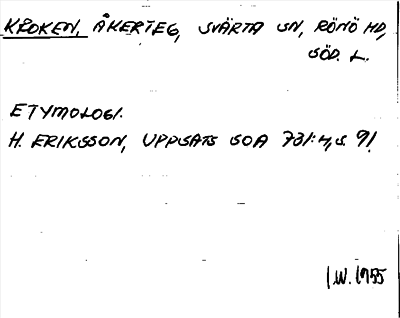 KROKEN, ÅKERTEG, SVÄRTA SN, RÖNÖ HD,
SÖD. L.
ETYMOLOGI.
H. ERIKSSON, UPPSATS SOA 731:4, S. 91.
I.W. 1955